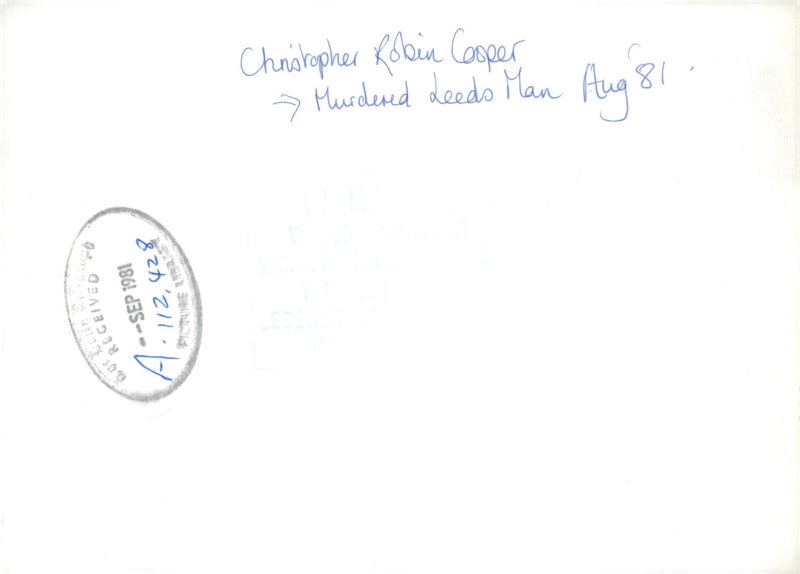 Christopher Robin Cooper
→ Murdered Leeds Man Aug '81.
RECEIVED
--SEP 1981
A. 112,428
PICTURE